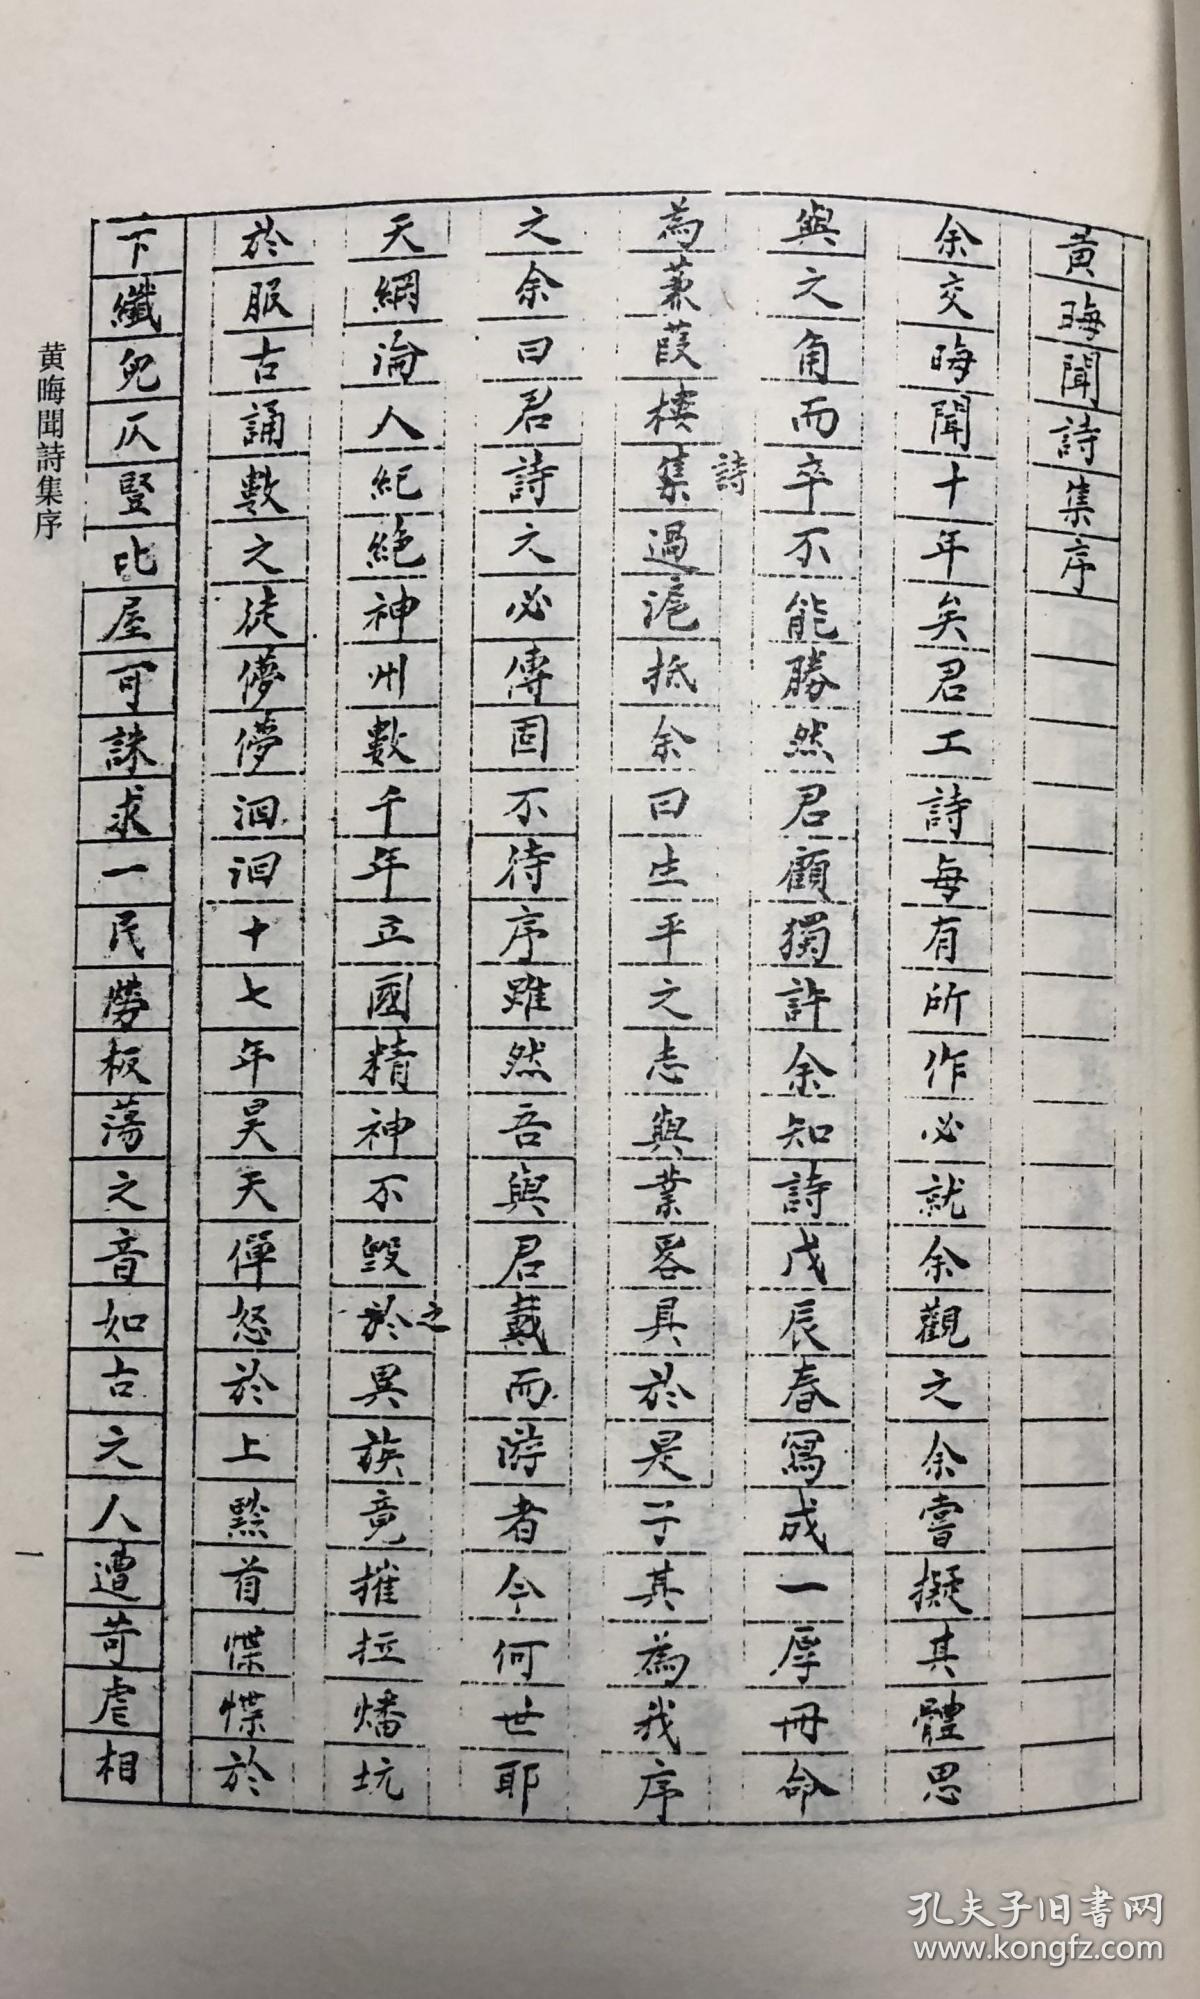 黄晦聞詩集序
余交晦聞十年矣君工詩每有所作必就余觀之余嘗擬其體思
與之角而卒不能勝然君顧獨許余知詩戊辰春寫成一厚冊命
為蒹葭樓詩集過滬抵余曰生平之志與業畧具於是子其為我序
之余曰君詩之必傳固不待序雖然吾與君戴而游者今何世耶
天綱淪人紀絶神州數千年立國精神不毀之於異族竟摧拉燔坑
於服古誦數之徒儚儚洄洄十七年昊天僤怒於上黔首惵惵於
下孅兒仄豎比屋可誅求一民勞板蕩之音如古之人遭苛虐相
黄晦聞詩集序
一
孔夫子旧书网
www.kongfz.com